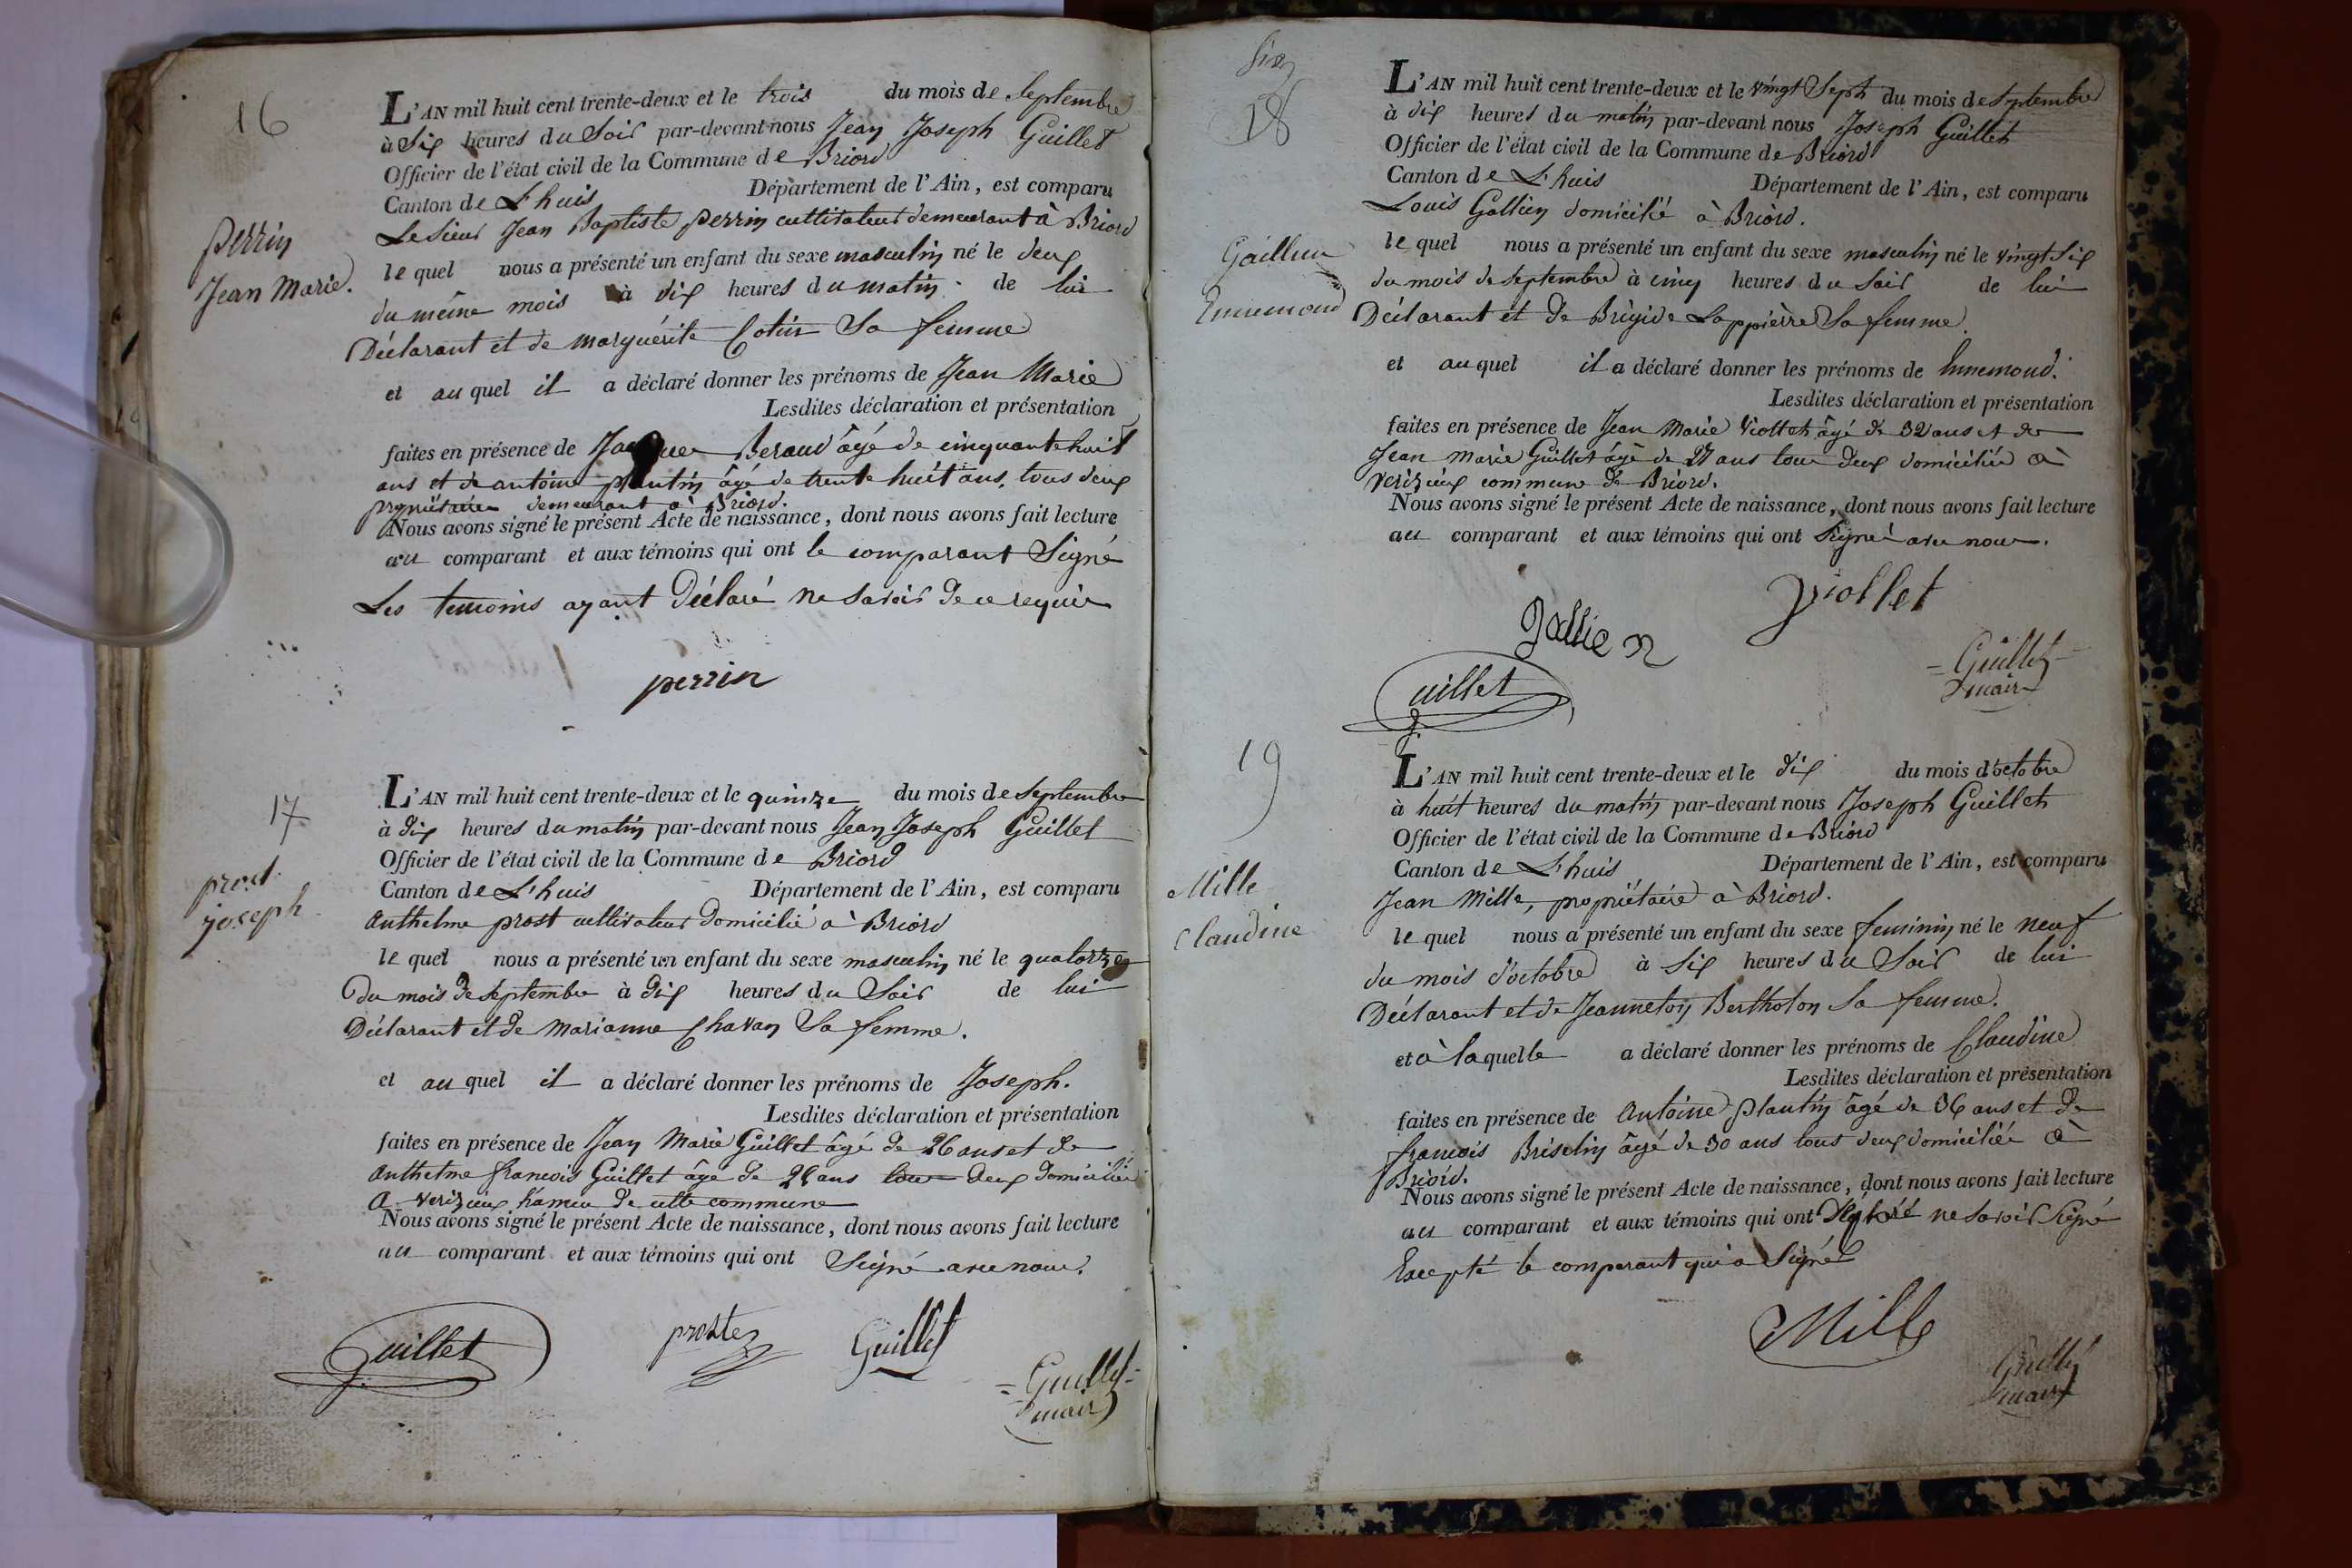 16
Perrin
Jean Marie.
L'AN mil huit cent trente-deux et le trois du mois de Septembre
à Six heures du Soir par-devant nous Jean Joseph Guillet
Officier de l'état civil de la Commune de Briord
Canton de L'huis Département de l'Ain, est comparu
Le Sieur Jean Baptiste Perrin cultivateur demeurant à Briord
le quel nous a présenté un enfant du sexe masculin né le deux
du même mois à dix heures du matin de lui
Déclarant et de marguérite Cotin Sa femme
et au quel il a déclaré donner les prénoms de Jean Marie
Lesdites déclaration et présentation
faites en présence de Beraud âgé de cinquante huit
ans et de antoine plantin âgé de trente huit ans, tous deux
propriétaires demeurant à Briord.
Nous avons signé le présent Acte de naissance, dont nous avons fait lecture
au comparant et aux témoins qui ont le comparant Signé
Les temoins ayant Déclaré ne Savoir de ce requis
perrin
17
prost
joseph
L'AN mil huit cent trente-deux et le quinze du mois de Septembre
à dix heures du matin par-devant nous Jean Joseph Guillet
Officier de l'état civil de la Commune de Briord
Canton de L'huis Département de l'Ain, est comparu
Anthelme prost cultivateur Domicilié à Briord
le quel nous a présenté un enfant du sexe masculin né le quatorze
du mois de Septembre à dix heures du Soir de lui
Déclarant et de Marianne Chavan Sa femme.
et au quel il a déclaré donner les prénoms de Joseph.
Lesdites déclaration et présentation
faites en présence de Jean Marie Guillet âgé de 26 ans et de
Anthelme francois Guillet âge de ans tous deux Domicilié
a verizieux hameu de cette commune
Nous avons signé le présent Acte de naissance, dont nous avons fait lecture
au comparant et aux témoins qui ont Signé avec nous.
Guillet
Guillet
Guillet
maire
18
Ennemond
L'AN mil huit cent trente-deux et le vingt Sept du mois de Septembre
à dix heures du matin par-devant nous Joseph Guillet
Officier de l'état civil de la Commune de Briord
Canton de L'huis Département de l'Ain, est comparu
Louis Gallien domicilié à Briord.
le quel nous a présenté un enfant du sexe masculin né le vingt Six
du mois de Septembre à cinq heures du Soir de lui
Déclarant et de Brigide Lappièrre Sa femme.
et au quel il a déclaré donner les prénoms de Ennemond.
Lesdites déclaration et présentation
faites en présence de Jean Marie Viollet âgé de 32 ans et de
Jean Marie Guillet âgé de 27 ans tous deux domiciliés à
verizieux commune de Briord.
Nous avons signé le présent Acte de naissance, dont nous avons fait lecture
au comparant et aux témoins qui ont Signé avec nous.
Viollet
Gallien
Guillet
maire
Guillet
19
Mille
Claudine
L'AN mil huit cent trente-deux et le dix du mois d'octobre
à huit heures du matin par-devant nous Joseph Guillet
Officier de l'état civil de la Commune de Briord
Canton de L'huis Département de l'Ain, est comparu
Jean Mille, propriétaire à Briord.
le quel nous a présenté un enfant du sexe feminin né le neuf
du mois d'octobre à Six heures du Soir de lui
Déclarant et de Jeanneton Bertholon Sa femme.
et à laquelle a déclaré donner les prénoms de Claudine
Lesdites déclaration et présentation
faites en présence de Antoine plantin âgé de 36 ans et de
francois âgé de 30 ans tous deux domiciliés à
Briord.
Nous avons signé le présent Acte de naissance, dont nous avons fait lecture
au comparant et aux témoins qui ont ne Savoir Signé
Excepté le comparant qui a Signé
Mille
Guillet
maire